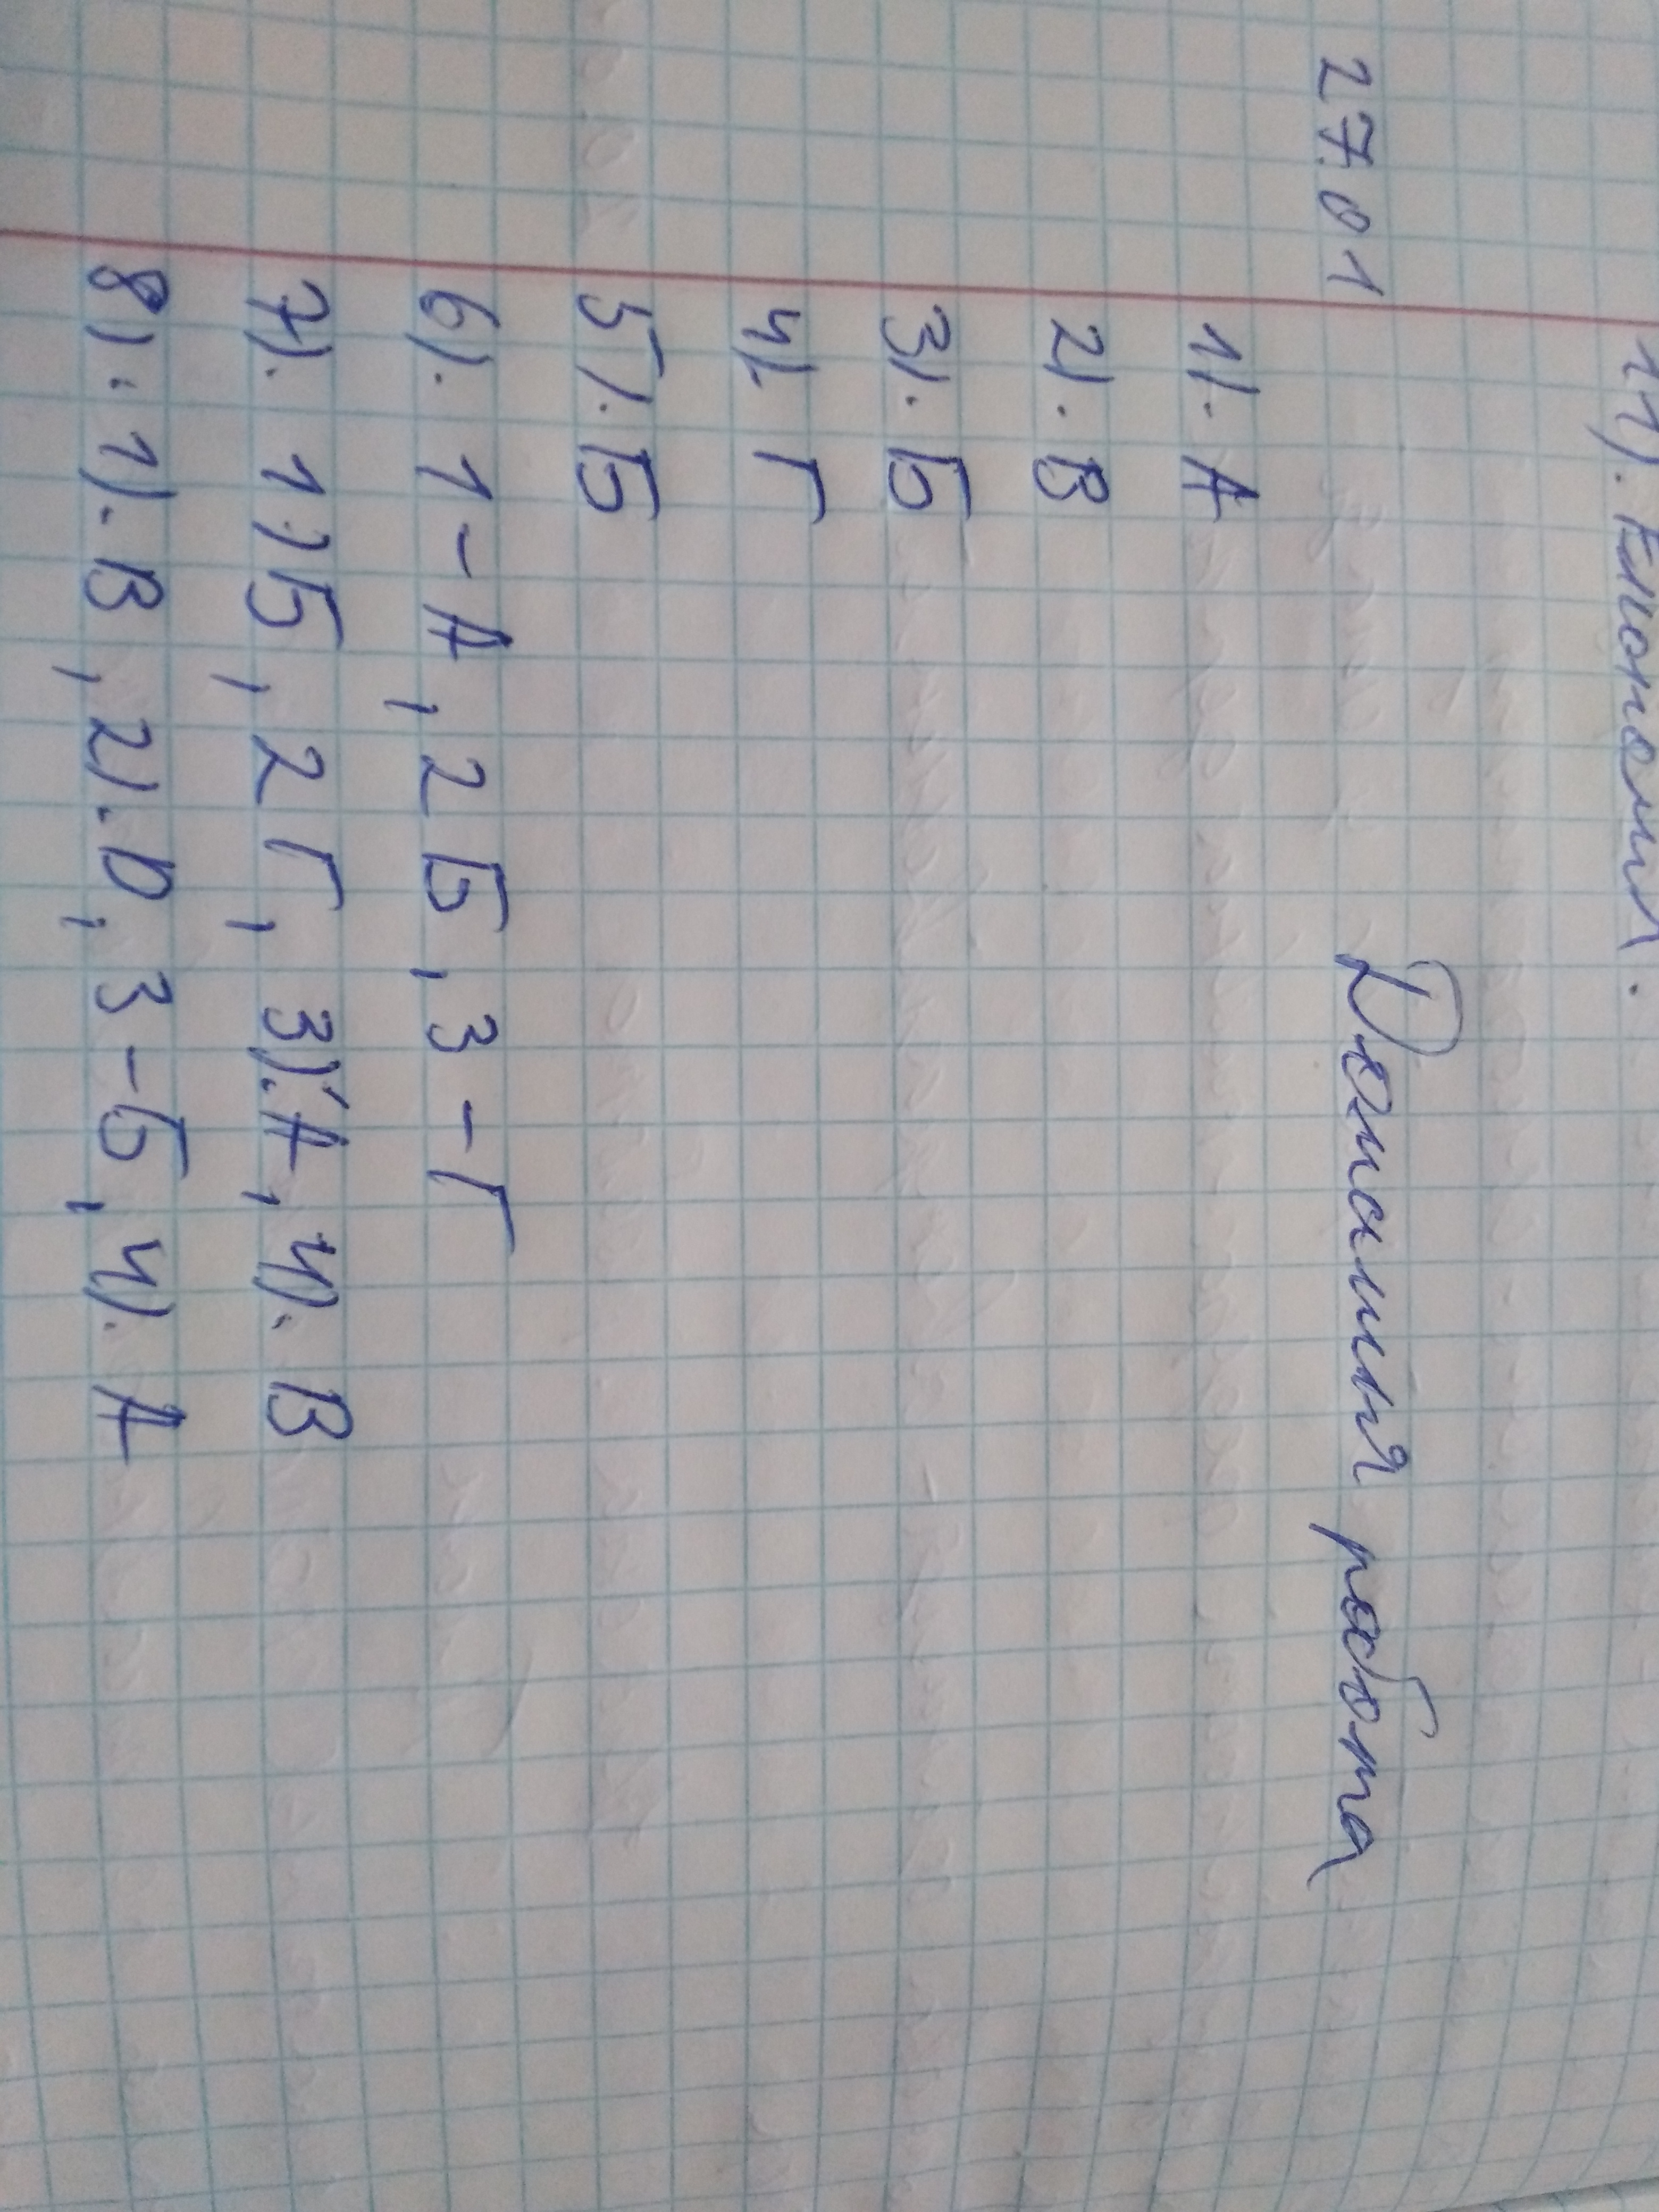 11). Економія.
27.01 Домашня робота
1). А
2). В
3). Б
4). Г
5). Б
6). 1 - А, 2 Б, 3 - Г
7). 1) Б, 2 Г, 3). А, 4). В
8). 1). В, 2). D, 3 - Б, 4). А